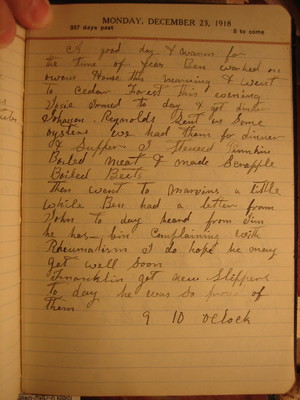 MONDAY, DECEMBER 23, 1918
357 days past 8 to come
A good day & warm for
the time of year Ben worked on
House this morning & went
to Cedar Forest this evening
to day & got
Reynolds Sent us Some
oysters we had them for dinner
& Supper I Stewed
Boiled meat & made Scrapple
Boiled Beets
Then went to Marvins a little
while Ben had a letter from
John to day heard from
he has bin Complaining with
Rheumatism I do hope he may
get well Soon
Franklin got new Slippers
to day he was So proud of
them
9 10 oClock